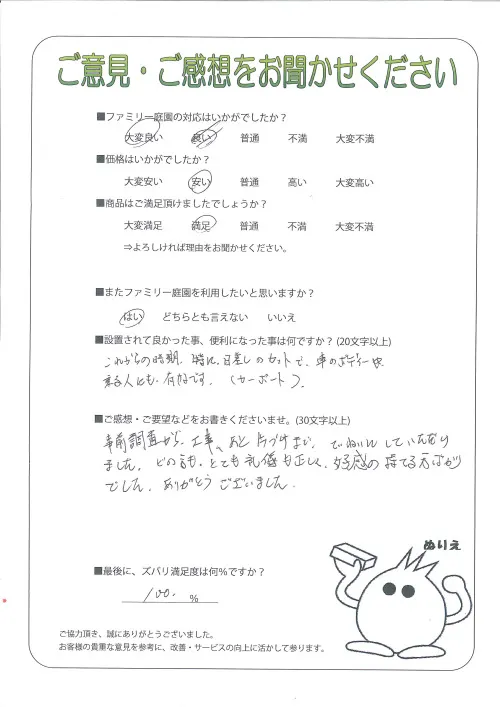 ご意見・ご感想をお聞かせください
■ファミリー庭園の対応はいかがでしたか？
大変良い 良い 普通 不満 大変不満
■価格はいかがでしたか？
大変安い 安い 普通 高い 大変高い
■商品はご満足頂けましたでしょうか？
大変満足 満足 普通 不満 大変不満
⇒よろしければ理由をお聞かせください。
■またファミリー庭園を利用したいと思いますか？
はい どちらとも言えない いいえ
■設置されて良かった事、便利になった事は何ですか？(20文字以上)
これからの時期、特に日差しのカットで、車のボディーや
人にも、有効です。(カーポート)
■ご感想・ご要望などをお書きくださいませ。(30文字以上)
事前調査から、工事、あと片づけまで、ていねいにしていただき
ました。どの方も、とても礼儀も正しく、好感の持てる方ばかり
でした。ありがとうございました。
ぬりえ
■最後に、ズバリ満足度は何％ですか？
100. %
ご協力頂き、誠にありがとうございました。
お客様の貴重な意見を参考に、改善・サービスの向上に活かして参ります。